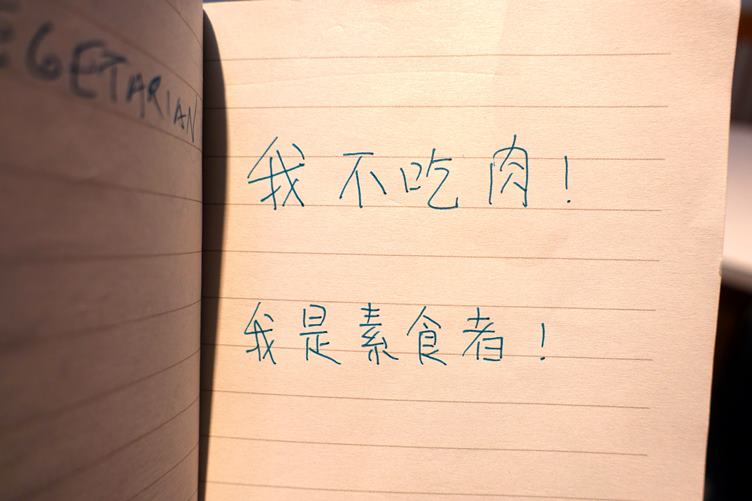 EGETARIAN
我不吃肉！
我是素食者！